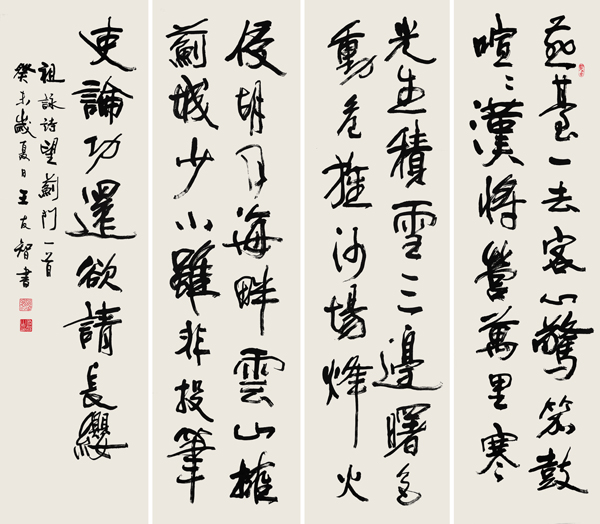 燕臺一去客心驚笳鼓
喧〻漢將營萬里寒
光生積雪三邊曙色
動危旌沙場烽火
侵胡月海畔雲山擁
薊城少小雖非投筆
吏論功還欲請長纓
祖詠诗望薊门一首
癸未歲夏日王友智書